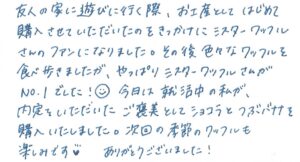 友人の家に遊びに行く際、お土産としてはじめて
購入させていただいたのをきっかけにミスターワッフル
さんのファンになりました。その後色々なワッフルを
食べ歩きましたが、やっぱりミスターワッフルさんが
NO.1でした!☺ 今日は就活中の私が、
内定をいただいたご褒美としてショコラとつぶバナナを
購入いたしました。次回の季節のワッフルも
楽しみです♥ ありがとうございました!